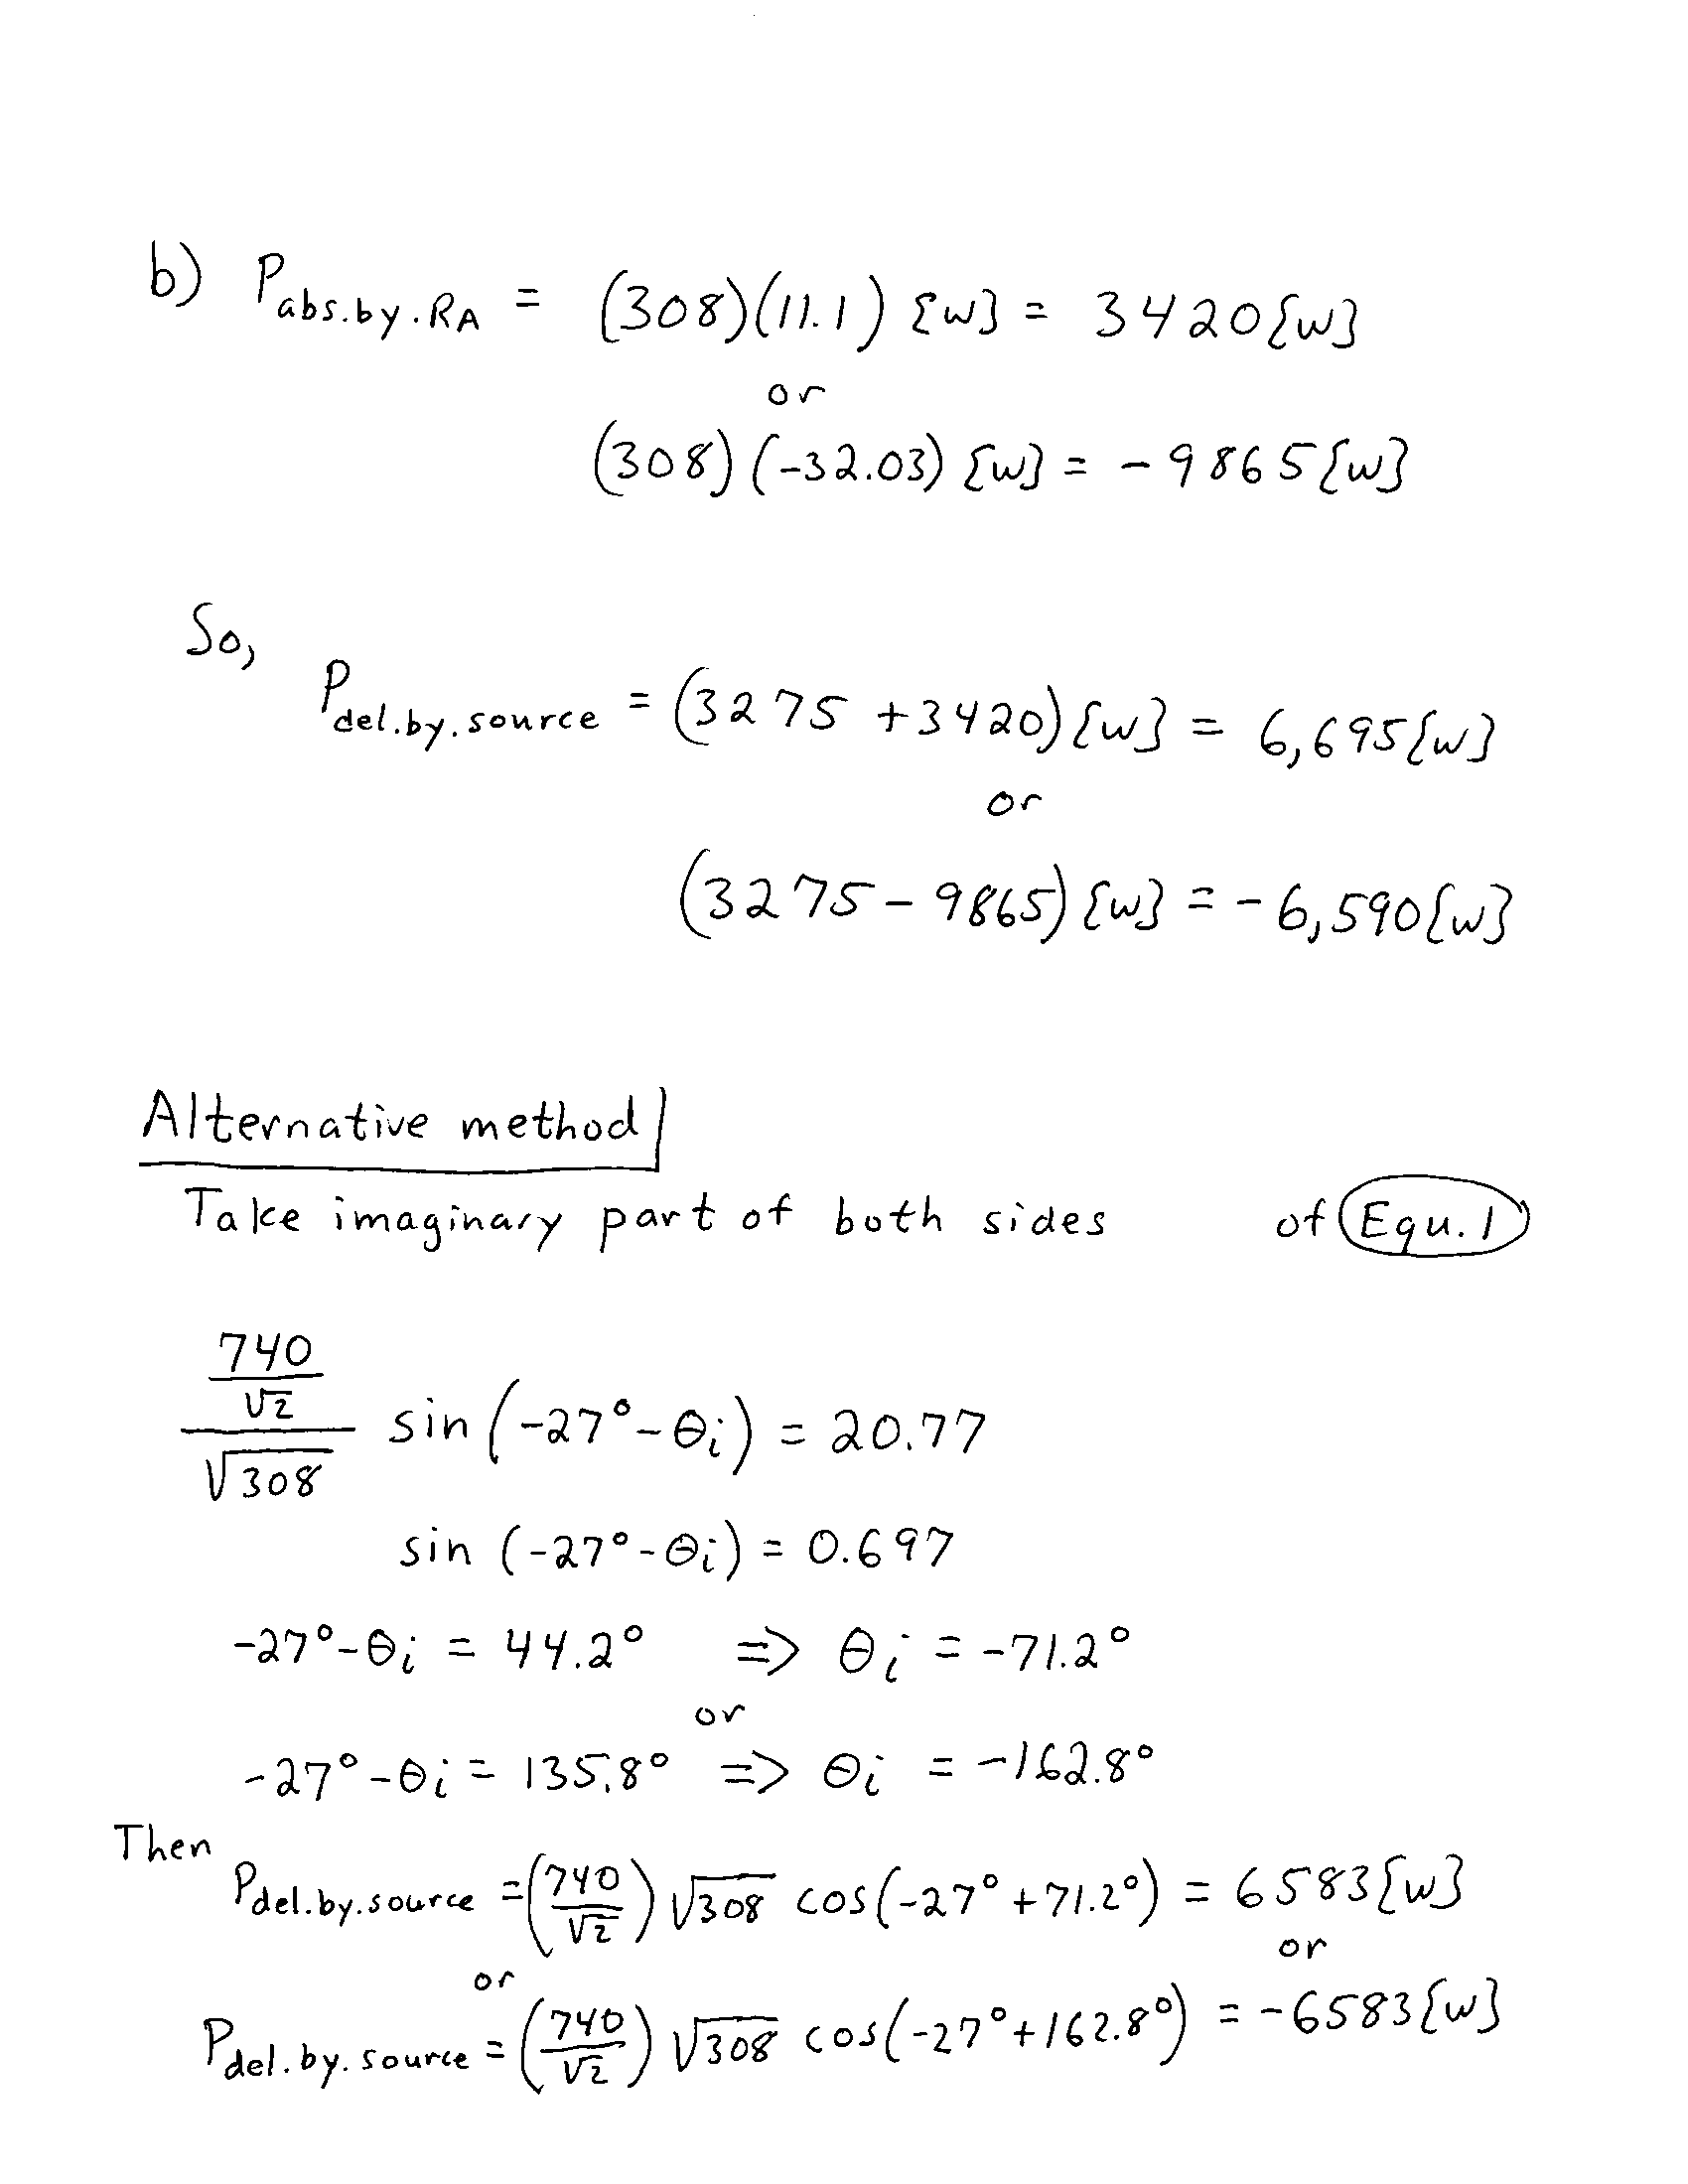 b) P abs.by.RA = (308)(11.1) {w} = 3420{w}
or
(308)(-32.03) {w} = -9865{w}
So,
P del.by.source = (3275 + 3420) {w} = 6,695{w}
or
(3275 - 9865) {w} = -6,590{w}
Alternative method
Take imaginary part of both sides of Equ. 1
740
√2
√308
sin(-27° - θi) = 20.77
sin (-27° - θi) = 0.697
-27° - θi = 44.2° => θi = -71.2°
or
-27° - θi = 135.8° => θi = -162.8°
Then
P del.by.source = (740/√2) √308 cos(-27° + 71.2°) = 6583{w}
or
or
P del.by.source = (740/√2) √308 cos(-27° + 162.8°) = -6583{w}